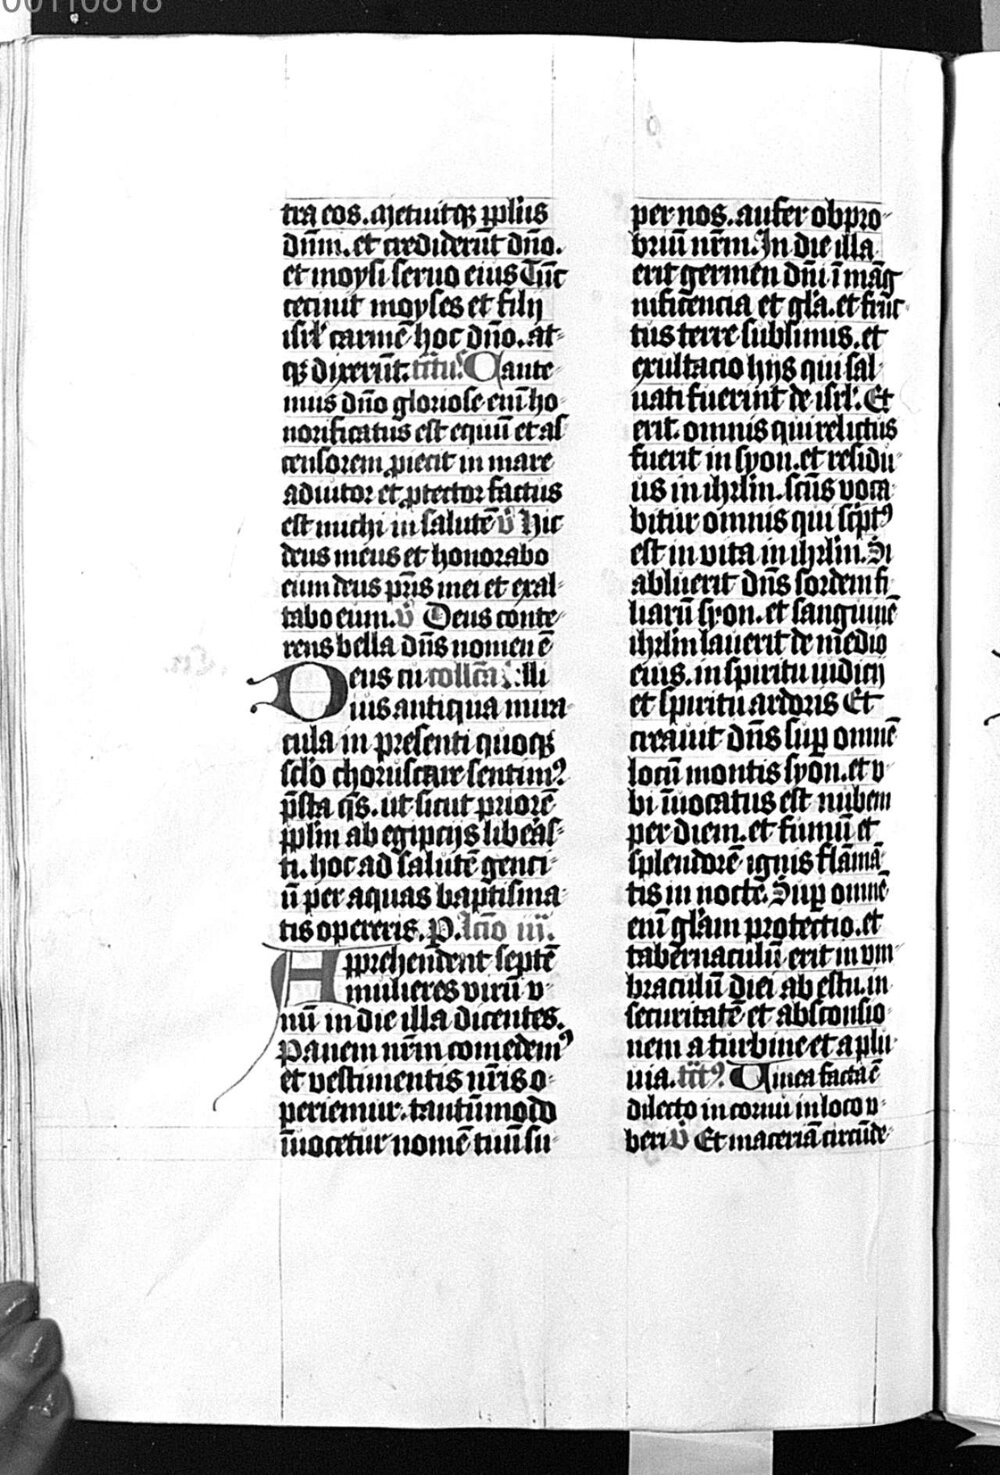 00110818
tra eos. Metuitqꝫ ppl̄us
dn̄m. et crediderūt dn̄o.
et moysi seruo eius Tūc
cecinit moyses et filij
isrl̄ carmē hoc dn̄o. at-
qꝫ dixerūt. tr̄ctuꝰ. Cante
mus dn̄o gloriose eni̅ ho
norificatus est equū et as
censorem ꝓiecit in mare
adiutor et ꝓtector factus
est michi in salutē v̄ Hic
deus meus et honorabo
eum deus pr̄is mei et exal-
tabo eum. v̄ Deus conte-
rens bella dn̄s nomen ē
Deus cu collc̄a :
ius antiqua mira
cula in presenti quoqꝫ
sc̄lo choruscare sentimꝰ
p̄sta q̄s. ut sicut priorē
pplm ab egipcijs libeās-
ti. hoc ad salutē genci-
ū per aquas baptisma
tis opereris. P. lc̄io iij.
Apprehendent septē
mulieres virū v-
nū in die illa dicentes.
Panem nr̄m comedemꝰ
et vestimentis nr̄is o-
periemur. tantūmodo
īuocetur nomē tuū su-
per nos. aufer obpro-
briū nr̄m. In die illa
erit germen dn̄i ī mag
nificencia et gl̄a. et fruc-
tus terre sublimis. et
exultacio hijs qui sal-
uati fuerint de isrl̄. Et
erit. omnis qui relictus
fuerit in syon. et residu-
us in ihrl̄m. sc̄us voca-
bitur omnis qui sc̄ptꝰ
est in vita in ihrl̄m. Si
abluerit dn̄s sordem fi
liarū syon. et sanguinē
ihrl̄m lauerit de medio
eius. in spiritu iudicij
et spiritu ardoris Et
creauit dn̄s suꝑ omnē
locū montis syon. et v-
bi īuocatus est nubem
per diem. et fumū et
splendorē ignis flāmā
tis in nocte. Suꝑ omnē
enī gl̄am protectio. et
tabernaculū erit in vm-
braculū diei ab estu. in
securitatē et absconsio-
nem a turbine et a plu-
uia. tr̄ctꝰ. Vinea facta ē
dilecto in cornu in loco v-
beri v̄ Et maceriā circūde-